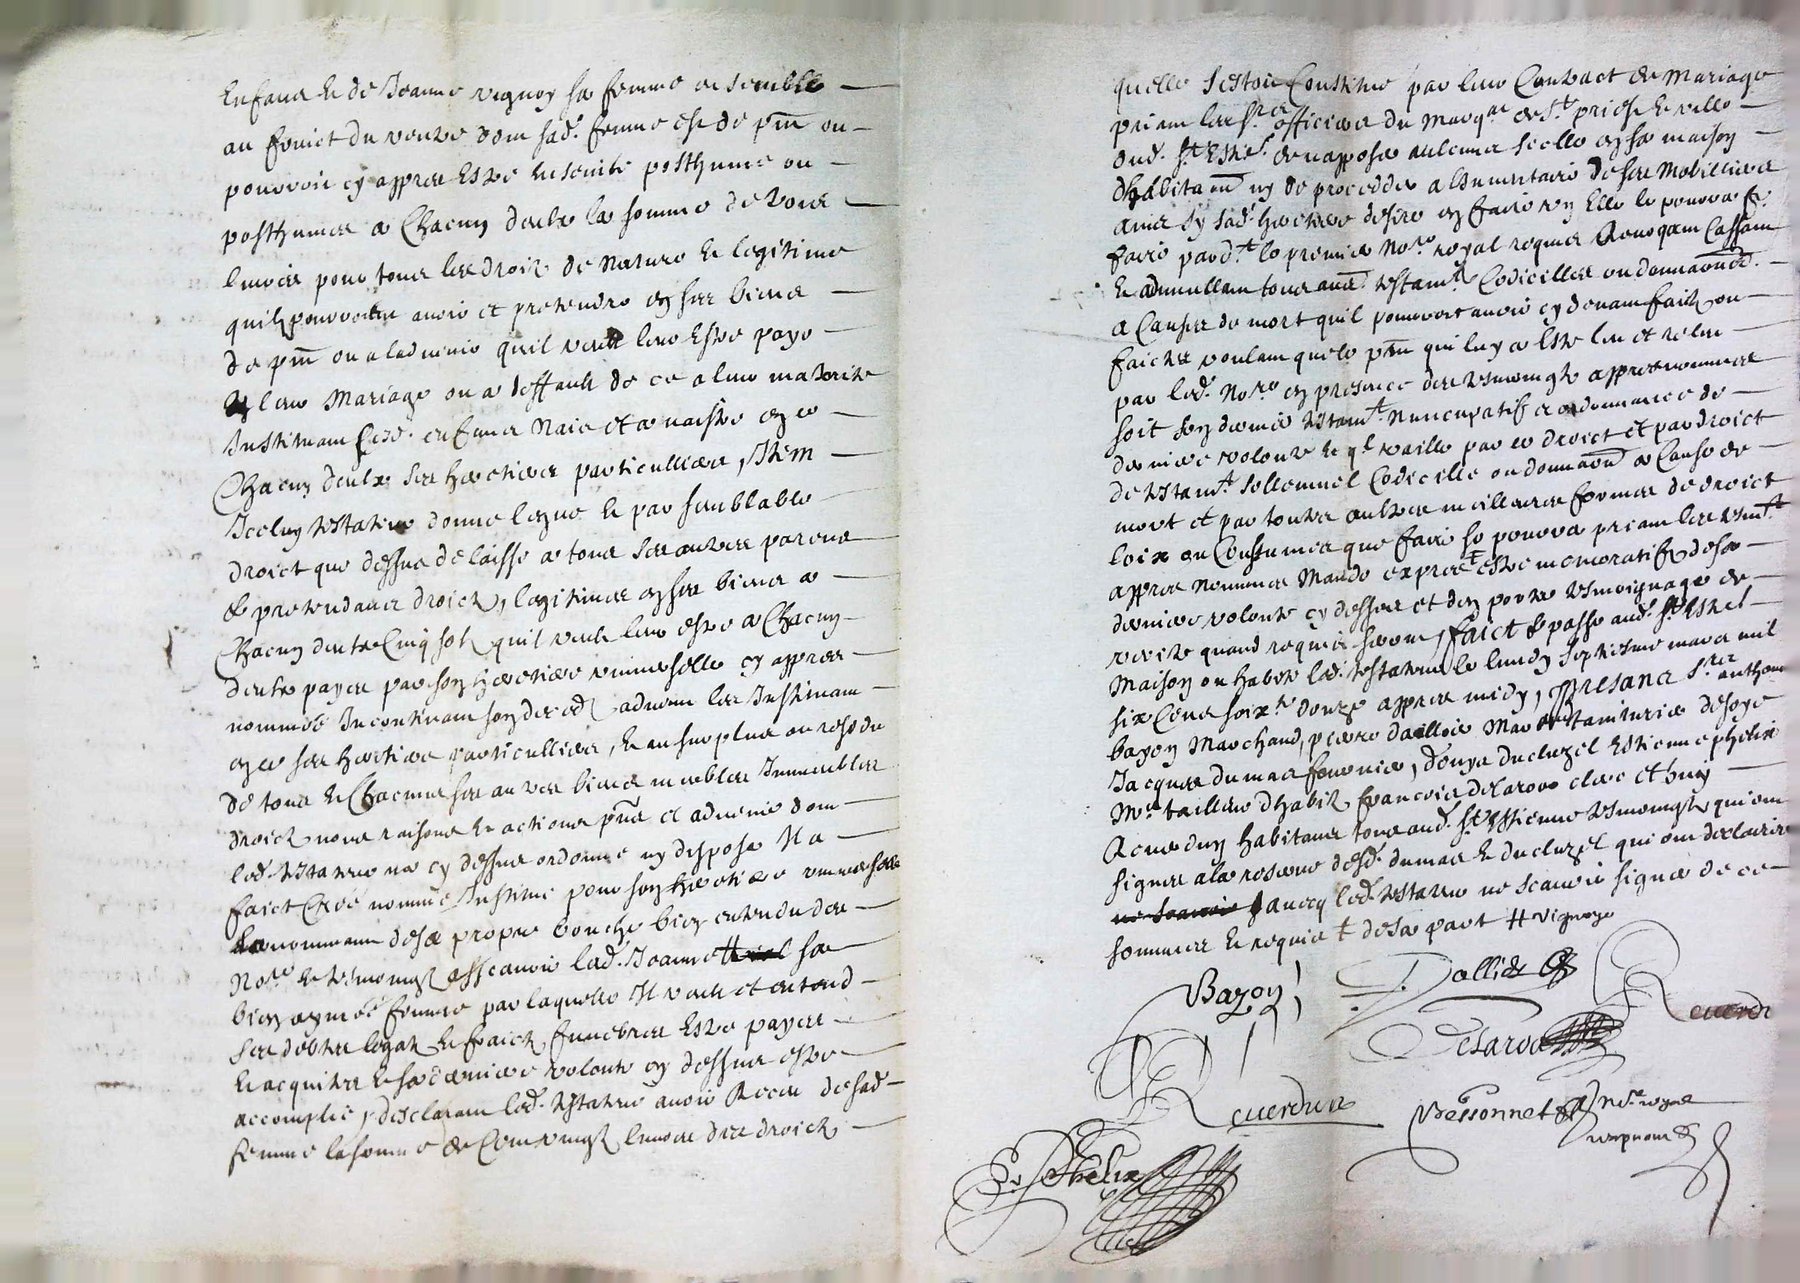 Enfans et de Jeanne vignoy sa femme ensemble
au fruict du ventre dont sad. femme est de pnt ou
pourroit cy appres Estre Ensceinte posthume ou
posthumes a Chacun deulx la somme de trois
livres pour tous les droitz de Nature et legitime
quilz pourroient avoir et pretendre en ses biens
de pnt ou a ladvenir quil veult leur Estre payé
leur Mariage ou a deffault de ce a leur majorite
Instituant lesd. enfans Nais et a naistre en ce
Chacun deulx ses heretiers particulliers, Item
Icelluy testateur donne legue et par semblable
droict que dessus delaisse a tous ses autres parens
et pretendans droictz, legitimes en ses biens a
Chacun deulx Cinq solz quil veult leur estre a Chacun
deulx payes par son heretiere universelle cy appres
nommée Incontinant son deces advenu les Instituant
en ce ses heretiers particulliers, Et au surplus ou reste
de tous et Chacuns ses autres biens meubles Immeubles
droictz noms raisons et actions pnts et advenir dont
led. testateur na cy dessus ordonné ny disposé Il a
faict Créé nommé Institué pour son heretiere universelle
la nommant de sa propre bouche bien entendu des
Nore et tesmoingz assçavoir lad. Jeanne sa
bien aymée femme par laquelle Il veult et entend
ses debtes legatz et fraictz funebres Estre payes
et acquites et sa derniere volonte cy dessus estre
accomplie, desclarant led. testateur avoir Receu de sad.
femme la somme de Cent vingt livres des droictz
quelle sestoit Constitué par leur Contract de Mariage
priant les srs officiers du Marqat de St priest et ville
dud. St Estne de napposer aulcuns scelle en sa maison
dhabitaon ny de procedder a lInventaire de ses Mobilliers
ains sy sad. heretiere desire en faire un Elle le pourra
faire pardt le premier Nore royal requis Revoquant Cassant
et adnullant tous aues testamts Codicilles ou donnaons
a Causes de mort quil pourroit avoir cy devant faictz ou
faictes voulant que le pnt qui luy a Este leu et releu
par led. Nore en presence des tesmoingtz appres nommes
soit son dernier testamt Nuncupatif et ordonnance de
derniere volonte et ql vaille par ce droict et par droict
de testamt sollemnel Codicille ou donnaon a Cause de
mort et par toutes aultres meilleures formes de droict
loix ou Coustumes que faire se pourra priant les tesmts
appres nommes Mandé expres estre memoratifz de sa
derniere volonte cy dessus et den porter tesmoignage de
verite quand requis seront, faict et passe aud. St Estne
Maison ou habite led. testateur le lundy septiesme mars mil
six Cens soixte douze appres midy, Presans srs anthoine
bazon Marchand, pierre dallier Mar tainturier de soye
Jacques dumas fornier, Denys ducluzel Estienne phelix
Mre tailleur dhabitz francois desaroa clerc et huy
Reverdun habitans tous aud. St Estienne tesmoingtz qui ont
signes a la reserve desd. dumas et ducluzel qui ont desclaire
avecq led. testateur ne scavoir signer de ce
sommes et requis de sa part H vignoye
Bazon
Dallier
Reverdun
Reverdun
Phelix
Bessonnet Nore royal